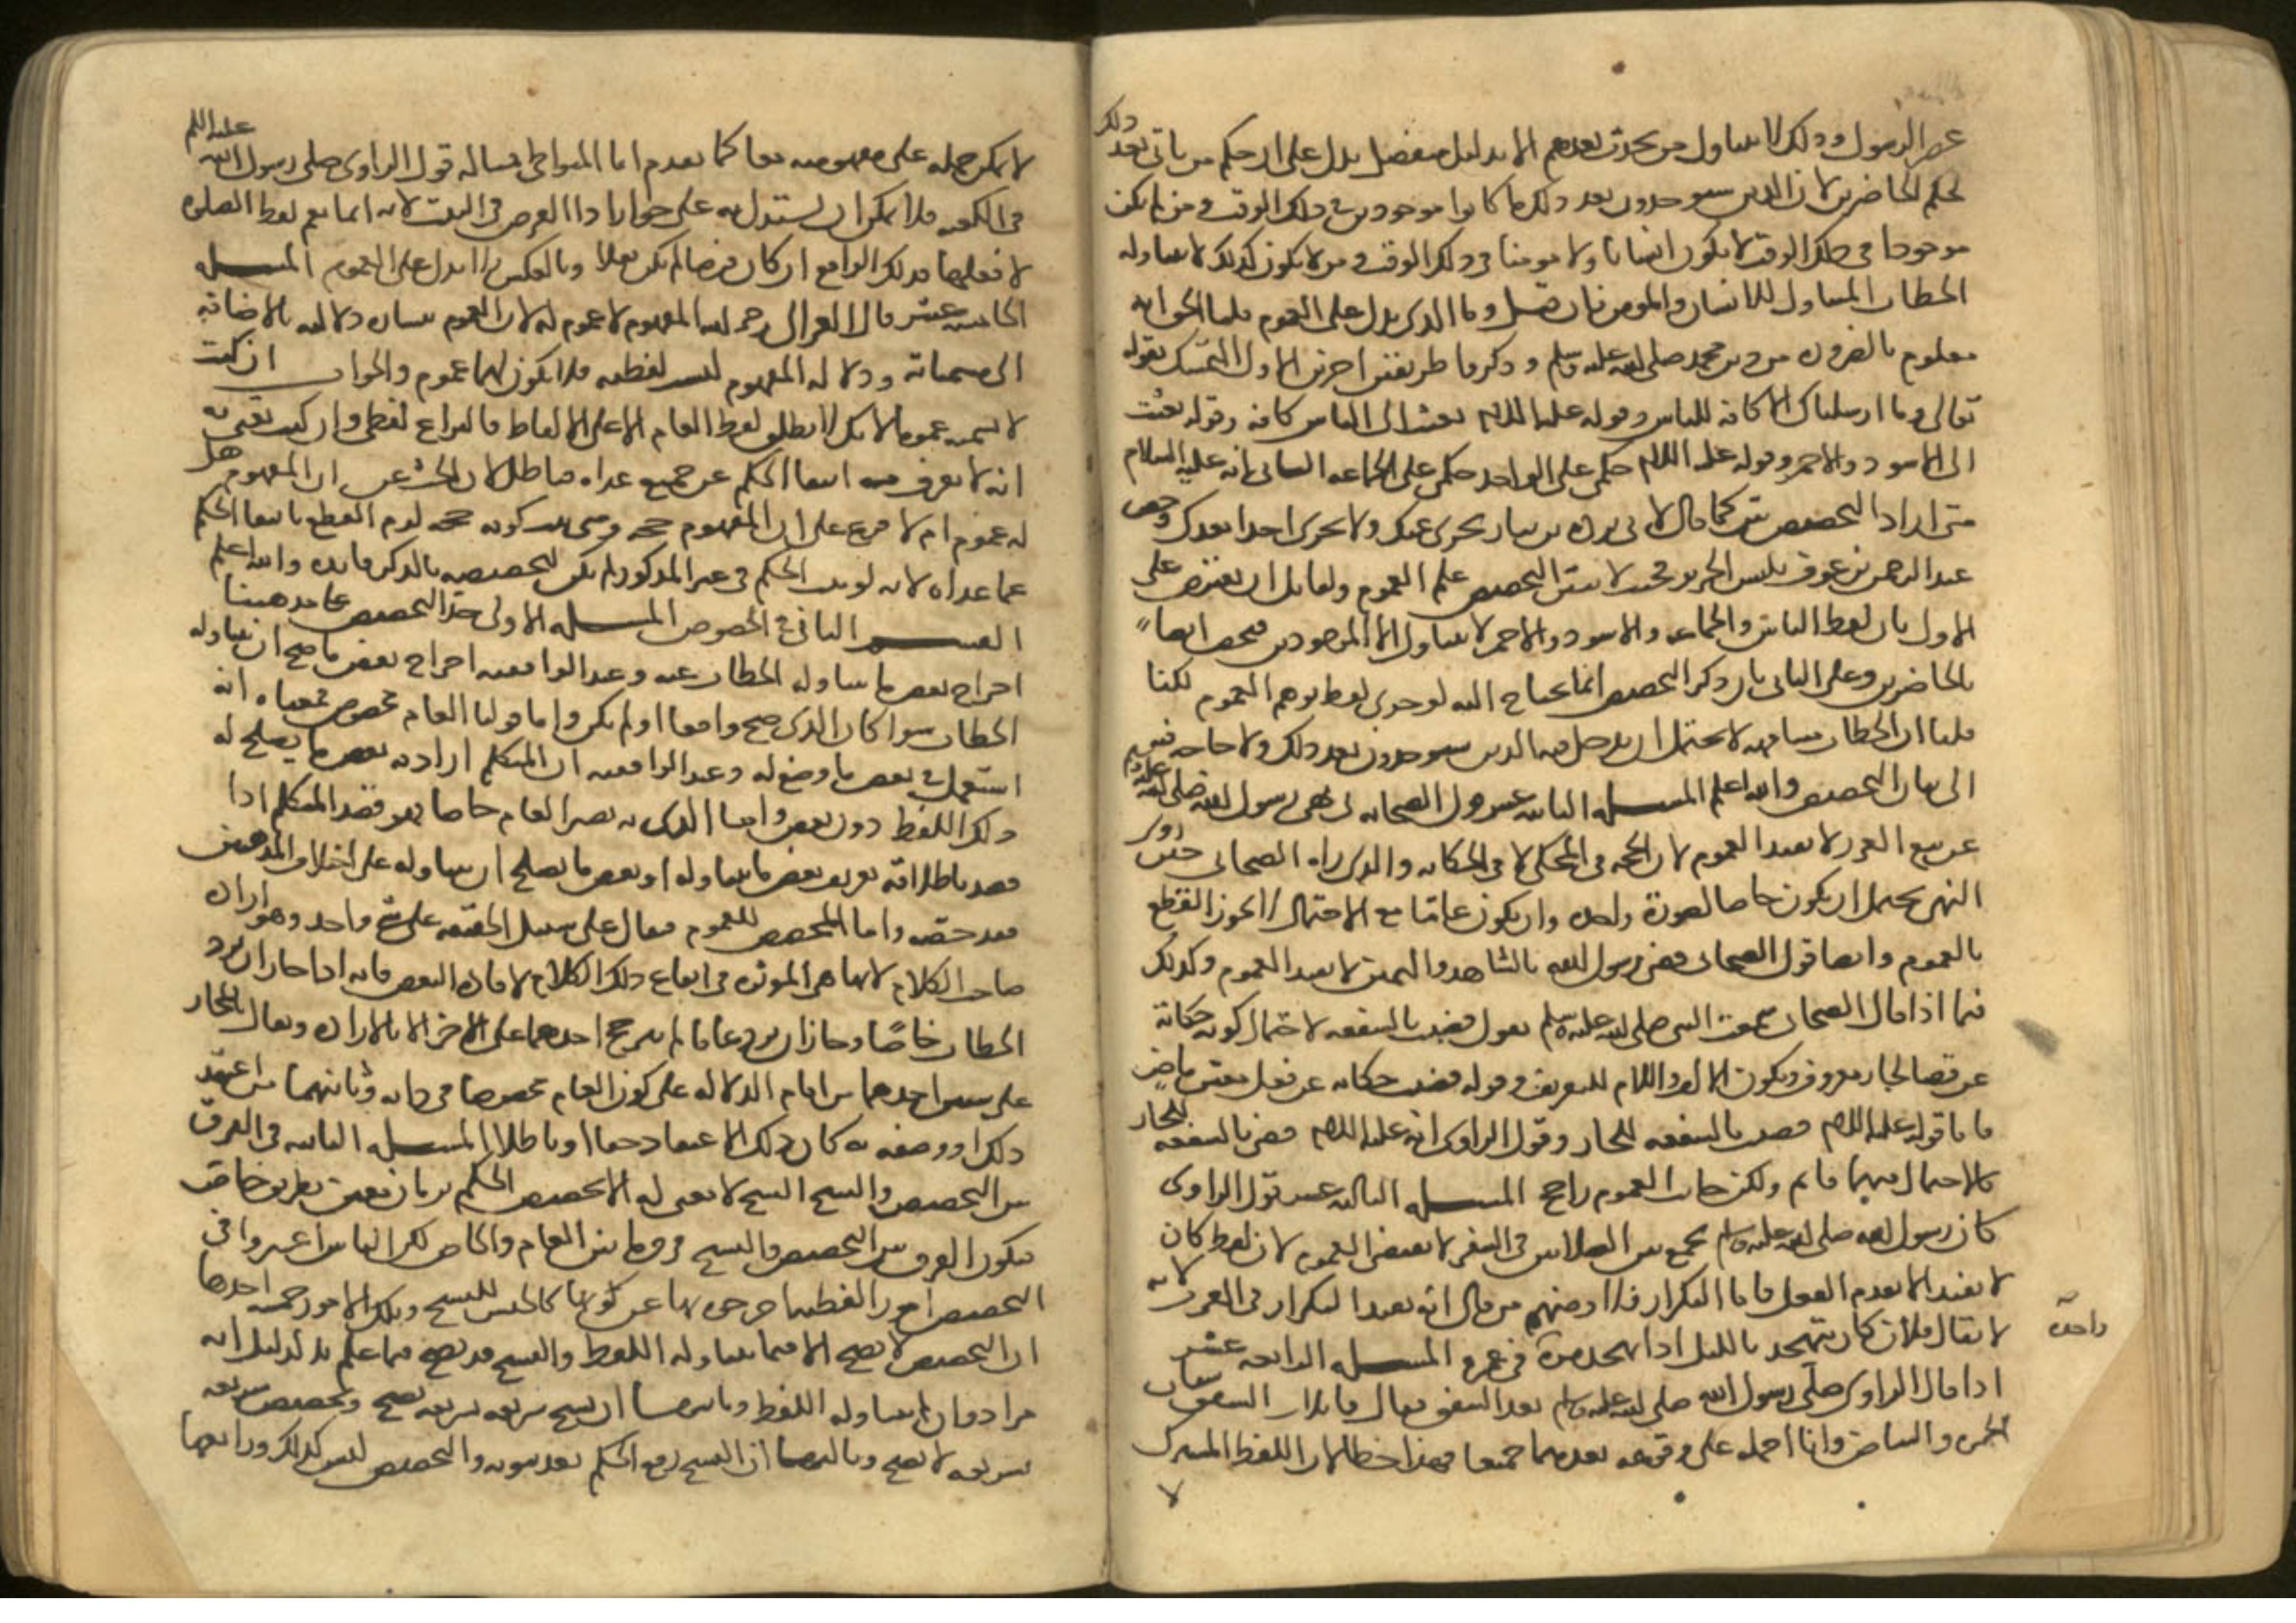 عصر الرسول وذلك لا يتناول من يحدث بعدهم الا بدليل منفصل يدل على ان حكم من ياتي بعد ذلك
كحكم الحاضرين لان الذين سيوجدون بعد ذلك ما كانوا موجودين في ذلك الوقت ومن لم يكن
موجودا في ذلك الوقت لا يكون انسانا ولا مومنا في ذلك الوقت ومن لا يكون كذلك لا يتناوله
الخطاب المتناول للانسان والمومن فان قيل وما الذي يدل على العموم قلنا الحق انه
معلوم بالضرورة من دين محمد صلى الله عليه وسلم وذكروا طريقتين اخرتين الاول التمسك بقوله
تعالى وما ارسلناك الا كافة للناس وقوله عليه السلام بعثت الى الناس كافة وقوله بعثت
الى الاسود والاحمر وقوله عليه السلام حكمي على الواحد حكمي على الجماعة الثاني انه عليه السلام
متى اراد التخصيص بين كما قال لابي بردة بن نيار يجزي عنك ولا يجزي احدا بعدك وخص
عبد الرحمن بن عوف بلبس الحرير فحيث لا يتبين التخصيص علم العموم ولقائل ان يعترض على
الاول بان لفظ الناس والجماعة والاسود والاحمر لا يتناول الا الموجودين فيختص ايضا
بالحاضرين وعلى الثاني بان ذكر التخصيص انما يحتاج اليه لو جرى لفظ يوهم العموم لكنا
قلنا ان الخطاب مشافهة لا يحتمل ان يدخل فيه الذين سيوجدون بعد ذلك ولا حاجة فيهم
الى بيان التخصيص والله اعلم المسلة الثانية عشر قول الصحابي نهى رسول الله صلى الله عليه وسلم
عن بيع الغرر لا يفيد العموم لان الحجة في المحكي لا في الحكاية والذي راه الصحابي حتى روى
النهي يحتمل ان يكون خاصا بصورة واحدة وان يكون عاما مع الاحتمال لا يجوز القطع
بالعموم وايضا قول الصحابي قضى رسول الله بالشاهد واليمين لا يفيد العموم وكذلك
فيما اذا قال الصحابي سمعت النبي صلى الله عليه وسلم يقول قضيت بالشفعة لاحتمال كونه حكاية
عن قضا لجار معروف ويكون الالف واللام للتعريف وقوله قضيت حكاية عن فعل معين ماض
فاما قوله عليه السلام قضيت بالشفعة للجار وقول الراوي انه عليه السلام قضى بالشفعة للجار
فالاحتمال فيهما قائم ولكن جانب العموم راجح المسلة الثالثة عشر قول الراوي
كان رسول الله صلى الله عليه وسلم يجمع بين الصلاتين في السفر لا يقتضي العموم لان لفظ كان
لا يفيد الا تقدم الفعل فاما التكرار فلا ومنهم من قال انه يفيد التكرار في العرف لانه
لا يقال فلان كان يتهجد بالليل اذا تهجد مرة في عمره المسلة الرابعة عشر
واحدة
اذا قال الراوي صلى رسول الله صلى الله عليه وسلم بعد الشفق فقال قائل الشفق شفقان
الحمرة والبياض وانا احمله على وقوعه بعدهما جميعا فهذا خطا لان اللفظ المشترك
لا
لا يمكن حمله على مفهوميه معا كما تقدم اما المتواطي فمساله قول الراوي صلى رسول الله عليه السلم
في الكعبة فلا يمكن ان يستدل به على جواز اداا الفرض في البيت لانه انما يعم لفظ الصلوة
لا فعلها فذلك الواقع ان كان فرضا لم يكن نفلا وبالعكس لا يدل على العموم المسلة
الخامسة عشر قال الغزالي رحمه الله المفهوم لا عموم له لان العموم لفظ يتشابه دلالته بالاضافة
الى مسمياته ودلالة المفهوم ليست لفظية فلا يكون لها عموم والجواب ان كنت
لا تسميه عموما لانك لا تطلق لفظ العام الا على الالفاظ فالنزاع لفظي وان كنت تعني به
انه لا يعرف منه انتفا الحكم عن جميع ما عداه فباطل لان البحث عن ان المفهوم هل
له عموم ام لا فرع على ان المفهوم حجة ومتى ثبت كونه حجة لزم القطع بانتفا الحكم
عما عداه لانه لو ثبت الحكم في غير المذكور لم يكن لتخصيصه بالذكر فايدة والله اعلم
القسم الثاني في الخصوص المسلة الاولى حد التخصيص على مذهبنا
اخراج بعض ما يتناوله الخطاب عنه وعند الواقفية اخراج بعض ما صح ان يتناوله
الخطاب سوا كان الذي صح واقعا او لم يكن واما قولنا العام مخصوص فمعناه انه
استعمل في بعض ما وضع له وعند الواقفية ان المتكلم اراد به بعض ما يصلح له
ذلك اللفظ دون بعض واما الذي به يصير العام خاصا فهو قصد المتكلم اذا
قصد باطلاقه تعريف بعض ما يتناوله او بعض ما يصلح ان يتناوله على اختلاف المذهبين
فقد خصه واما المخصص للعموم فيقال على سبيل الحقيقة على شي واحد وهو ارادة
صاحب الكلام لانها هي الموثرة في ايقاع ذلك الكلام لافادة البعض فانه اذا جاز ان يرد
الخطاب خاصا وجاز ان يرد عاما لم يترجح احدهما على الاخر الا بالارادة ويقال بالمجاز
على شيين احدهما من اقام الدلالة على كون العام مخصوصا في ذاته وثانيهما من اعتقد
ذلك او وصفه به كان ذلك الاعتقاد حقا او باطلا المسلة الثانية في الفرق
بين التخصيص والنسخ النسخ لا معنى له الا تخصيص الحكم بزمان معين بطريق خاص
فيكون الفرق بين التخصيص والنسخ فرق ما بين العام والخاص لكن الناس اعتبروا في
التخصيص امورا لفظية اخرجوه بها عن كونه كالجنس للنسخ وتلك الامور خمسة احدها
ان التخصيص لا يصح الا فيما يتناوله اللفظ والنسخ قد يصح فيما علم بالدليل انه
مراد وان لم يتناوله اللفظ وثانيها ان نسخ شريعة بشريعة يصح وتخصيص شريعة
بشريعة لا يصح وثالثها ان النسخ رفع الحكم بعد ثبوته والتخصيص ليس كذلك ورابعها